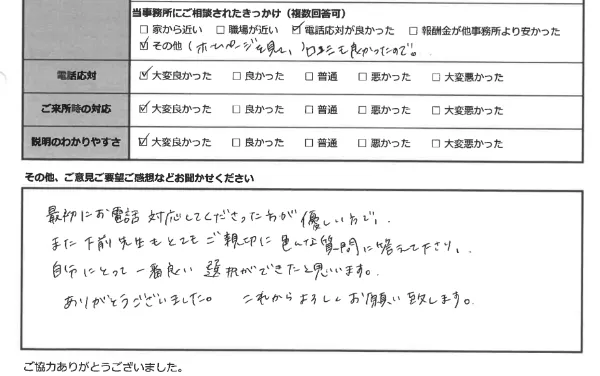 当事務所にご相談されたきっかけ（複数回答可）
□ 家から近い □ 職場が近い ☑ 電話応対が良かった □ 報酬金が他事務所より安かった
☑ その他（ホームページを見て、口コミも良かったので。
電話応対 ☑ 大変良かった □ 良かった □ 普通 □ 悪かった □ 大変悪かった
ご来所時の対応 ☑ 大変良かった □ 良かった □ 普通 □ 悪かった □ 大変悪かった
説明のわかりやすさ ☑ 大変良かった □ 良かった □ 普通 □ 悪かった □ 大変悪かった
その他、ご意見ご要望ご感想などお聞かせください
最初にお電話対応してくださった方が優しい方で、
また下前先生もとてもご親切に色んな質問に答えて下さり、
自分にとって一番良い選択ができたと思います。
ありがとうございました。 これからよろしくお願い致します。
ご協力ありがとうございました。